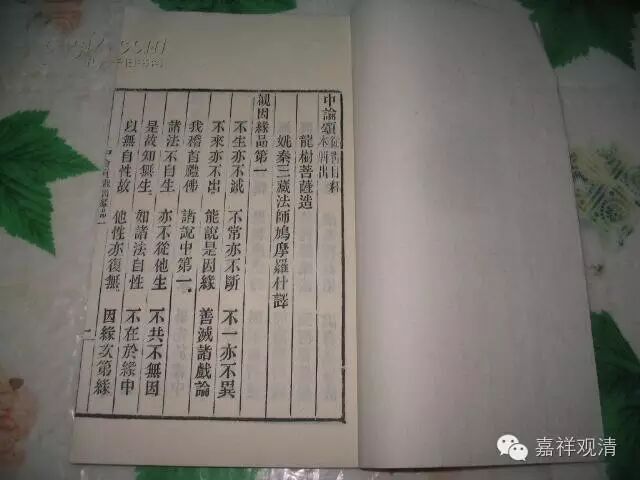 中論頌
龍樹菩薩造
姚秦三藏法師鳩摩羅什譯
觀因緣品第一
不生亦不滅 不常亦不斷 不一亦不異
不來亦不出 能說是因緣 善滅諸戲論
我稽首禮佛 諸說中第一
諸法不自生 亦不從他生 不共不無因
是故知無生 如諸法自性 不在於緣中
以無自性故 他性亦復無 因緣次第緣
嘉祥观清